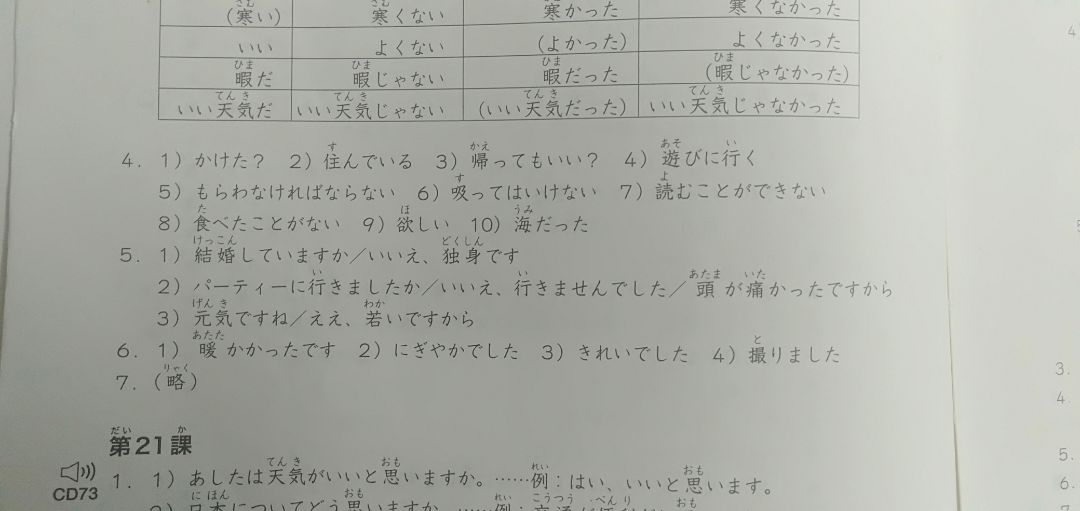 (寒い) 寒くない 寒かった 寒くなかった
いい よくない (よかった) よくなかった
暇だ 暇じゃない 暇だった (暇じゃなかった)
いい天気だ いい天気じゃない (いい天気だった) いい天気じゃなかった
4. 1) かけた? 2) 住んでいる 3) 帰ってもいい? 4) 遊びに行く
5) もらわなければならない 6) 吸ってはいけない 7) 読むことができない
8) 食べたことがない 9) 欲しい 10) 海だった
5. 1) 結婚していますか/いいえ、独身です
2) パーティーに行きましたか/いいえ、行きませんでした/頭が痛かったですから
3) 元気ですね/ええ、若いですから
6. 1) 暖かかったです 2) にぎやかでした 3) きれいでした 4) 撮りました
7. (略)
第21課
CD73
1. 1) あしたは天気がいいと思いますか。……例:はい、いいと思います。
2) 日本についてどう思いますか。……例:
4
5
3.
4.
5.
6.
7